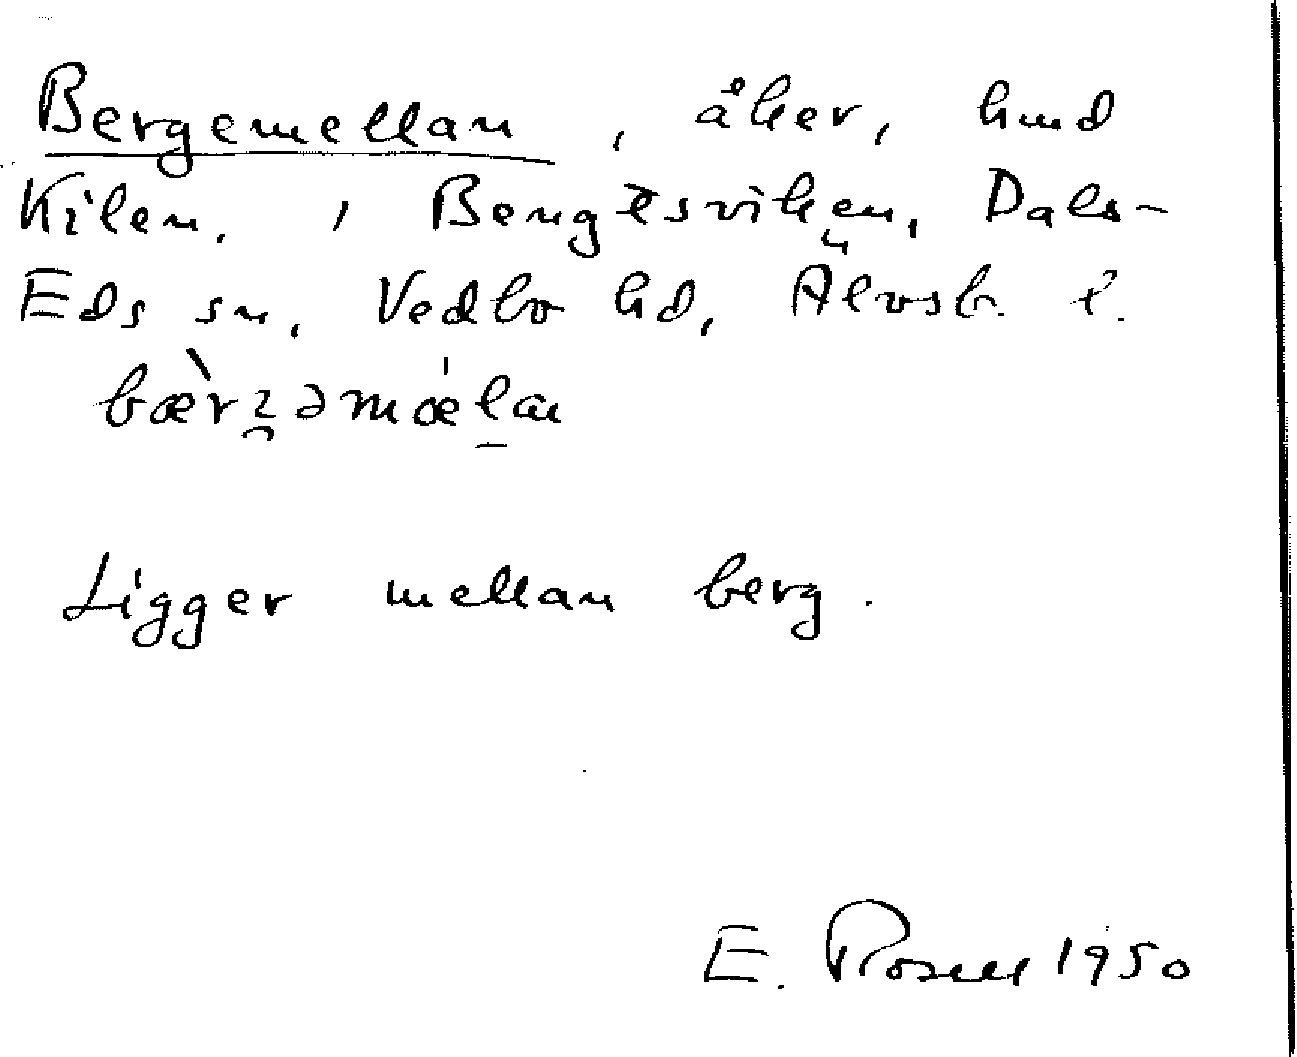 Bergemellan, åker, hmd
Kilen, Bengtsviken, Dals-
Eds sn, Vedbo hd, Älvsb. l.
Ligger mellan berg.
E. Rosell 1950